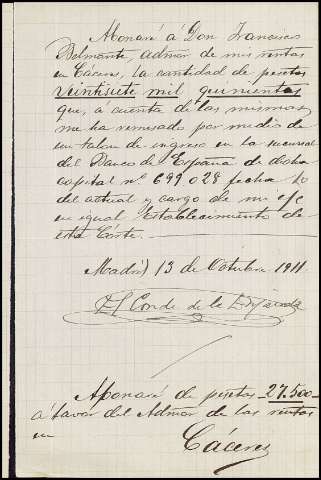 Abonaré á Don Francisco
Belmonte, admor de mis rentas
en Cáceres, la cantidad de pesetas
veintisiete mil quinientas
que, á cuenta de las mismas,
me ha remesado por medio de
un talon de ingreso en la sucursal
del Banco de España de dicha
capital nº 699028 fecha 10
del actual y cargo de mi c/c
en igual Establecimiento de
esta Córte.
Madrid 13 de Octubre 1911
El Conde de la
Abonaré de pesetas 27.500
á favor del Admor de las rentas
en
Cáceres